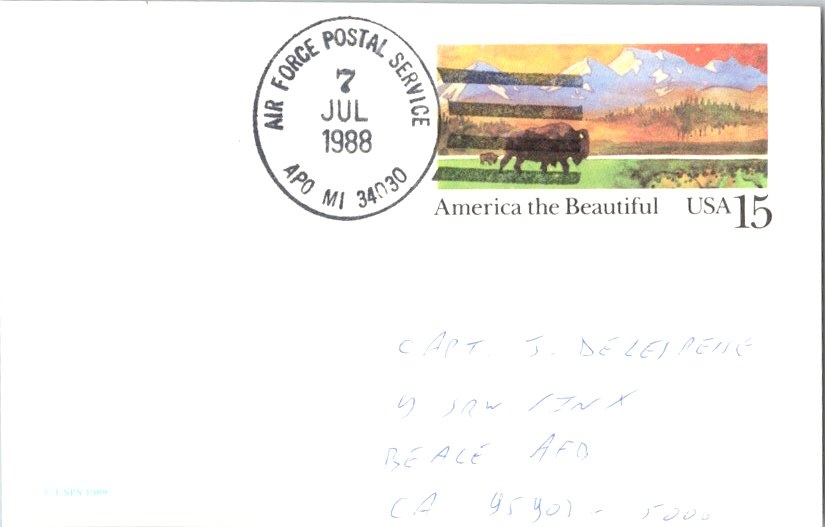 AIR FORCE POSTAL SERVICE
7
JUL
1988
APO MI 34030
America the Beautiful USA 15
CAPT. J.
9 SRW / INX
BEALE AFB
CA 95903 - 5000
© USPS 1988